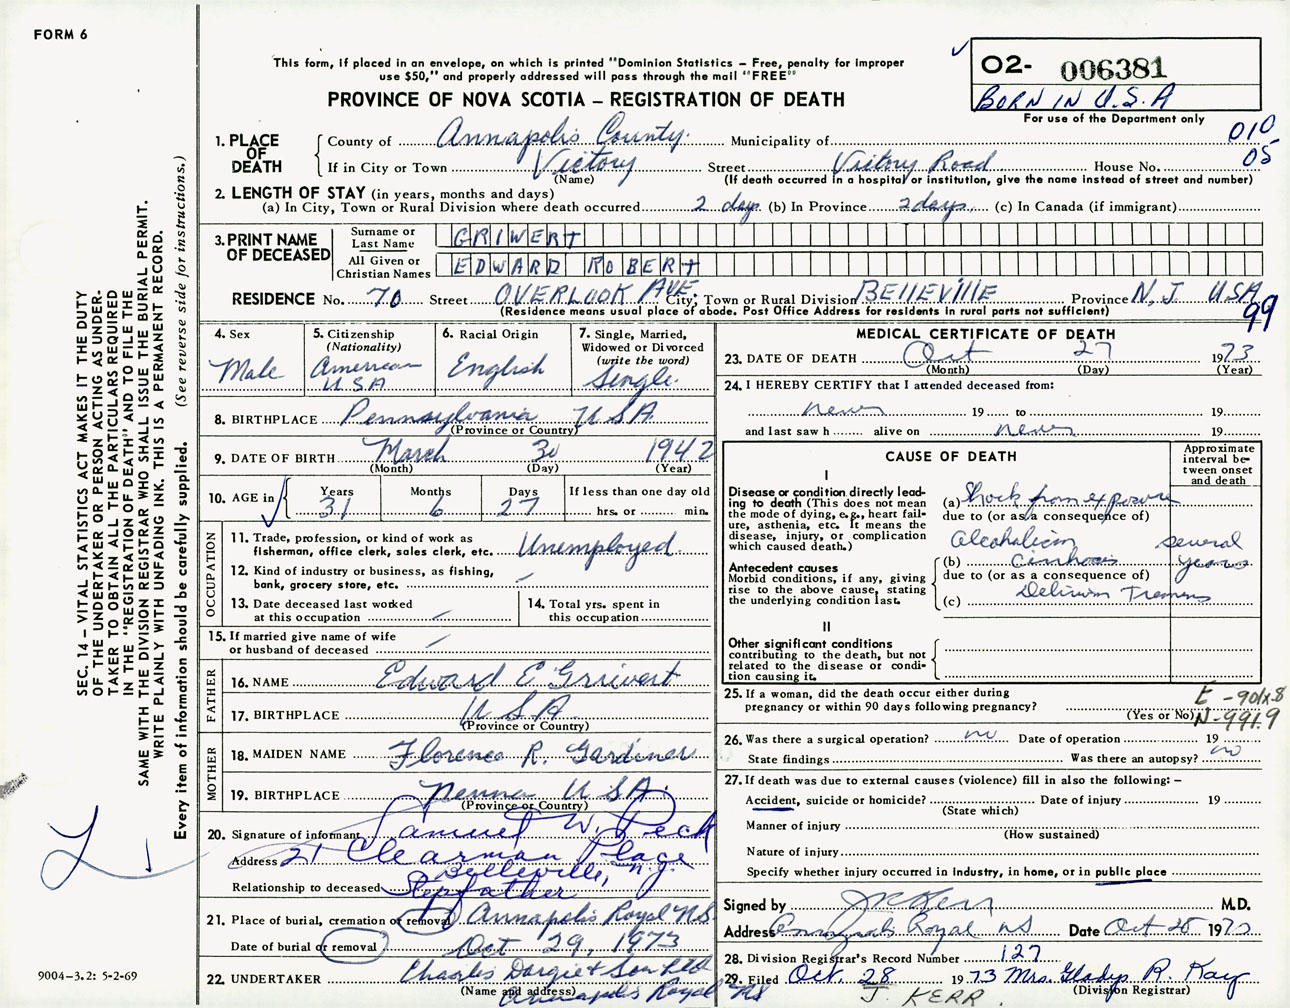 FORM 6
This form, if placed in an envelope, on which is printed "Dominion Statistics – Free, penalty for improper
use $50," and properly addressed will pass through the mail "FREE"
PROVINCE OF NOVA SCOTIA – REGISTRATION OF DEATH
O2- 006381
BORN IN U.S.A
For use of the Department only
010
05
1. PLACE OF DEATH
County of Annapolis County. Municipality of
If in City or Town Victory Street Victory Road House No.
(Name) (If death occurred in a hospital or institution, give the name instead of street and number)
2. LENGTH OF STAY (in years, months and days)
(a) In City, Town or Rural Division where death occurred 2 days (b) In Province 2 days (c) In Canada (if immigrant)
3. PRINT NAME OF DECEASED
Surname or Last Name GRIWERT
All Given or Christian Names EDWARD ROBERT
RESIDENCE No. 70 Street OVERLOOK AVE City, Town or Rural Division BELLEVILLE Province N.J. USA
(Residence means usual place of abode. Post Office Address for residents in rural parts not sufficient)
99
4. Sex
Male
5. Citizenship
(Nationality)
American
USA
6. Racial Origin
English
7. Single, Married,
Widowed or Divorced
(write the word)
Single.
8. BIRTHPLACE Pennsylvania USA
(Province or Country)
9. DATE OF BIRTH March 30 1942
(Month) (Day) (Year)
10. AGE in
Years Months Days If less than one day old
31 6 27 hrs. or min.
OCCUPATION
11. Trade, profession, or kind of work as
fisherman, office clerk, sales clerk, etc. Unemployed.
12. Kind of industry or business, as fishing,
bank, grocery store, etc.
13. Date deceased last worked
at this occupation
14. Total yrs. spent in
this occupation
15. If married give name of wife
or husband of deceased
FATHER
16. NAME Edward E Griwert
17. BIRTHPLACE USA
(Province or Country)
MOTHER
18. MAIDEN NAME Florence R. Gardiner
19. BIRTHPLACE Penna USA.
(Province or Country)
20. Signature of informant Samuel W. Peck
Address 21 Clearman Place
Belleville, N.J.
Relationship to deceased Stepfather
21. Place of burial, cremation or removal Annapolis Royal NS
Date of burial or removal Oct 29, 1973
22. UNDERTAKER Charles Dargie & Son Ltd
(Name and address) Annapolis Royal NS
MEDICAL CERTIFICATE OF DEATH
23. DATE OF DEATH Oct 27 1973
(Month) (Day) (Year)
24. I HEREBY CERTIFY that I attended deceased from:
never 19 to 19
and last saw h alive on never 19
CAUSE OF DEATH
Approximate
interval be-
tween onset
and death
I
Disease or condition directly lead-
ing to death (This does not mean
the mode of dying, e.g., heart fail-
ure, asthenia, etc. It means the
disease, injury, or complication
which caused death.)
(a) Shock from exposure
due to (or as a consequence of)
Alcoholism several
(b) Cirrhosis years
due to (or as a consequence of)
(c) Delirium Tremens
Antecedent causes
Morbid conditions, if any, giving
rise to the above cause, stating
the underlying condition last.
II
Other significant conditions
contributing to the death, but not
related to the disease or condi-
tion causing it.
25. If a woman, did the death occur either during
pregnancy or within 90 days following pregnancy?
(Yes or No)
N-991.9
26. Was there a surgical operation? no Date of operation 19
State findings Was there an autopsy? no
27. If death was due to external causes (violence) fill in also the following: –
Accident, suicide or homicide? Date of injury 19
(State which)
Manner of injury
(How sustained)
Nature of injury
Specify whether injury occurred in industry, in home, or in public place
Signed by J Kerr M.D.
Address Annapolis Royal NS Date Oct 1973
28. Division Registrar's Record Number 127
29. Filed Oct. 28 1973 Mrs. Gladys R. Kay
(Division Registrar)
J. KERR.
SEC. 14 – VITAL STATISTICS ACT MAKES IT THE DUTY
OF THE UNDERTAKER OR PERSON ACTING AS UNDER-
TAKER TO OBTAIN ALL THE PARTICULARS REQUIRED
IN THE "REGISTRATION OF DEATH" AND TO FILE THE
SAME WITH THE DIVISION REGISTRAR WHO SHALL ISSUE THE BURIAL PERMIT.
WRITE PLAINLY WITH UNFADING INK. THIS IS A PERMANENT RECORD.
Every item of information should be carefully supplied. (See reverse side for instructions.)
9004-3.2: 5-2-69